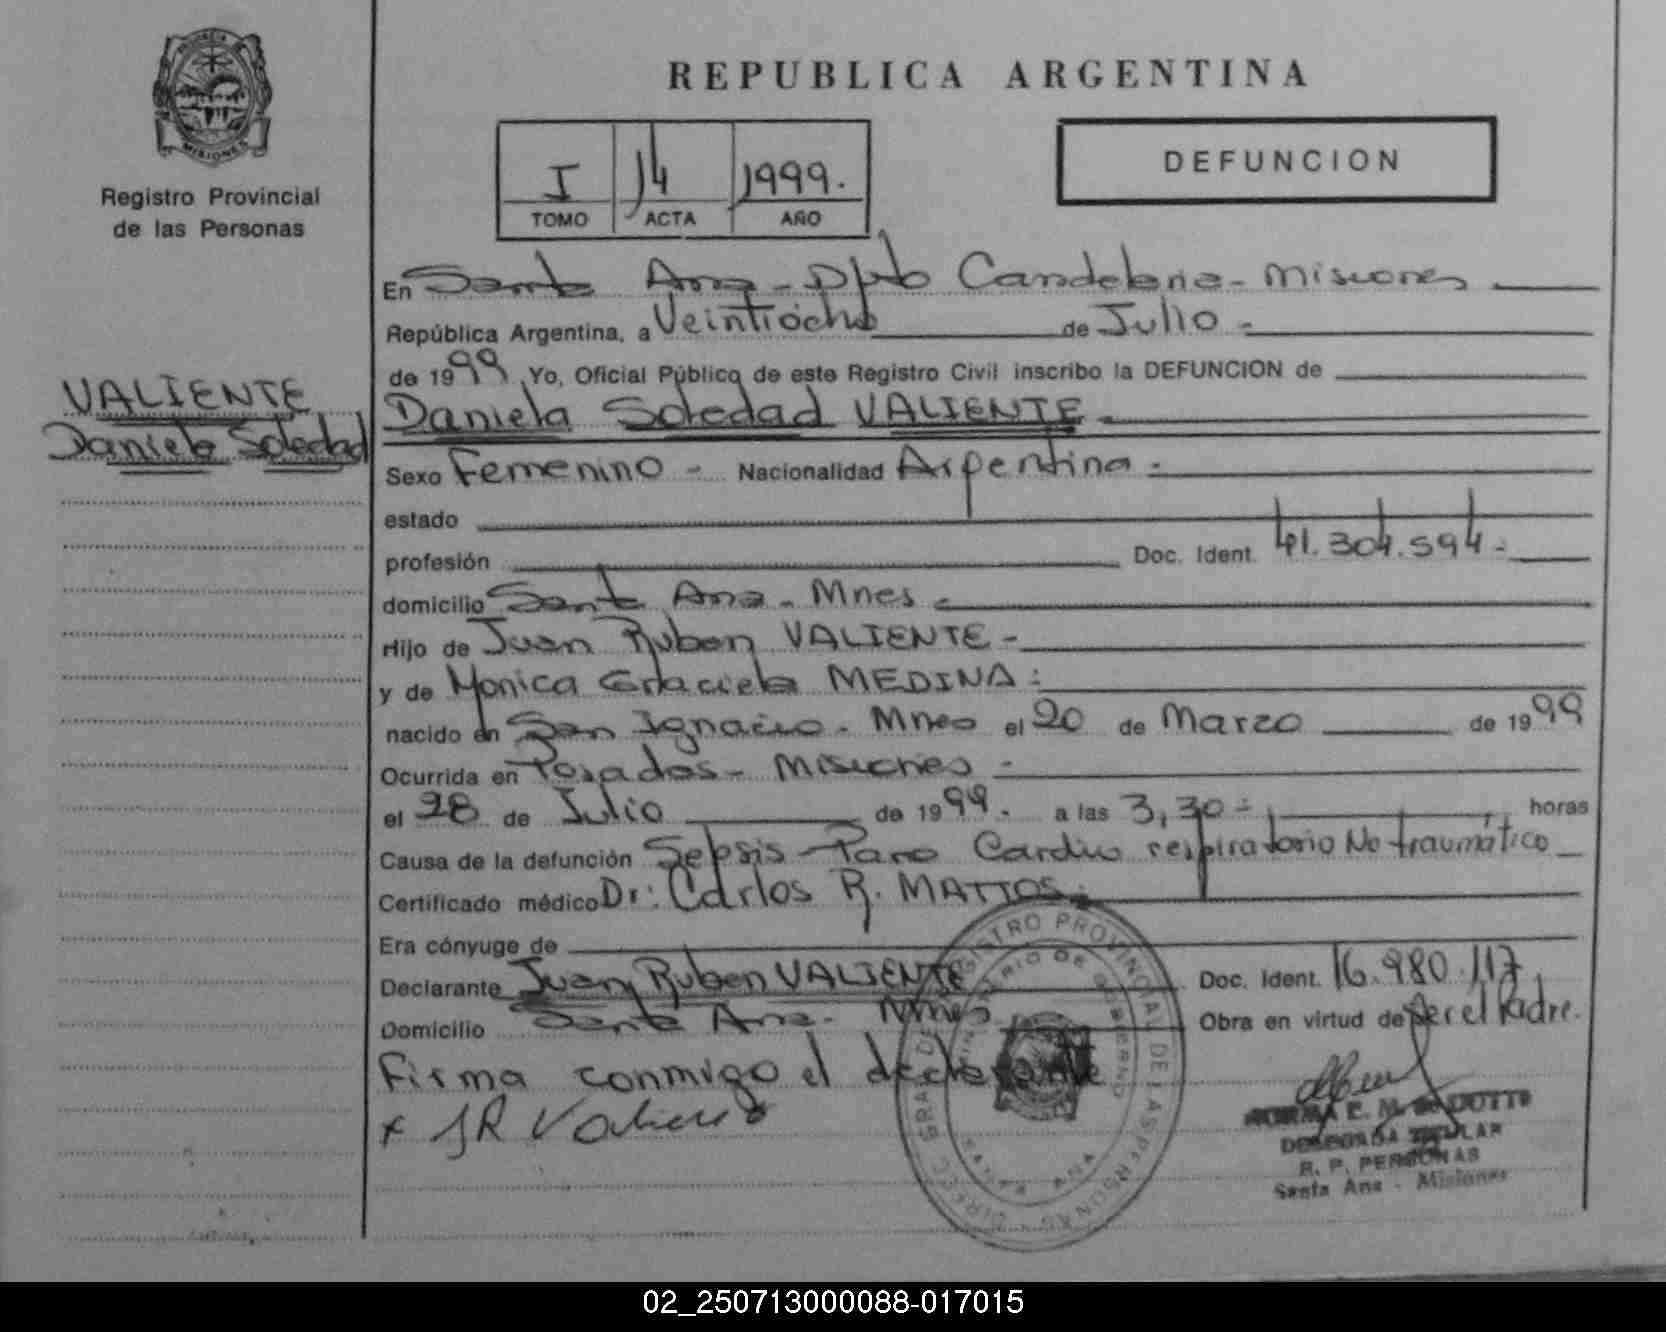 PROVINCIA DE
MISIONES
Registro Provincial
de las Personas
VALIENTE
Daniela Soledad
REPUBLICA ARGENTINA
I 14 1999.
TOMO ACTA AÑO
DEFUNCION
En Santa Ana - Dpto Candelaria - Misiones
República Argentina, a Veintiocho de Julio -
de 1999 Yo, Oficial Público de este Registro Civil inscribo la DEFUNCION de
Daniela Soledad VALIENTE
Sexo Femenino - Nacionalidad Argentina -
estado
profesión Doc. Ident. 41.304.594 -
domicilio Santa Ana - Mnes -
Hijo de Juan Ruben VALIENTE -
y de Monica Graciela MEDINA -
nacido en San Ignacio - Mnes el 20 de Marzo de 1999
Ocurrida en Posadas - Misiones -
el 28 de Julio de 1999. a las 3,30 - horas
Causa de la defunción Sepsis - Paro Cardio respiratorio No traumático
Certificado médico Dr: Carlos R. MATTOS
Era cónyuge de
Declarante Juan Ruben VALIENTE Doc. Ident. 16.980.117
Domicilio Santa Ana - Mnes Obra en virtud de ser el Padre.
Firma conmigo el declarante
x JR Valiente
REGISTRO PROVINCIAL DE LAS PERSONAS
MINISTERIO DE GOBIERNO
SANTA ANA
NORMA E. M. de
DELEGADA TITULAR
R. P. PERSONAS
Santa Ana - Misiones
02_250713000088-017015